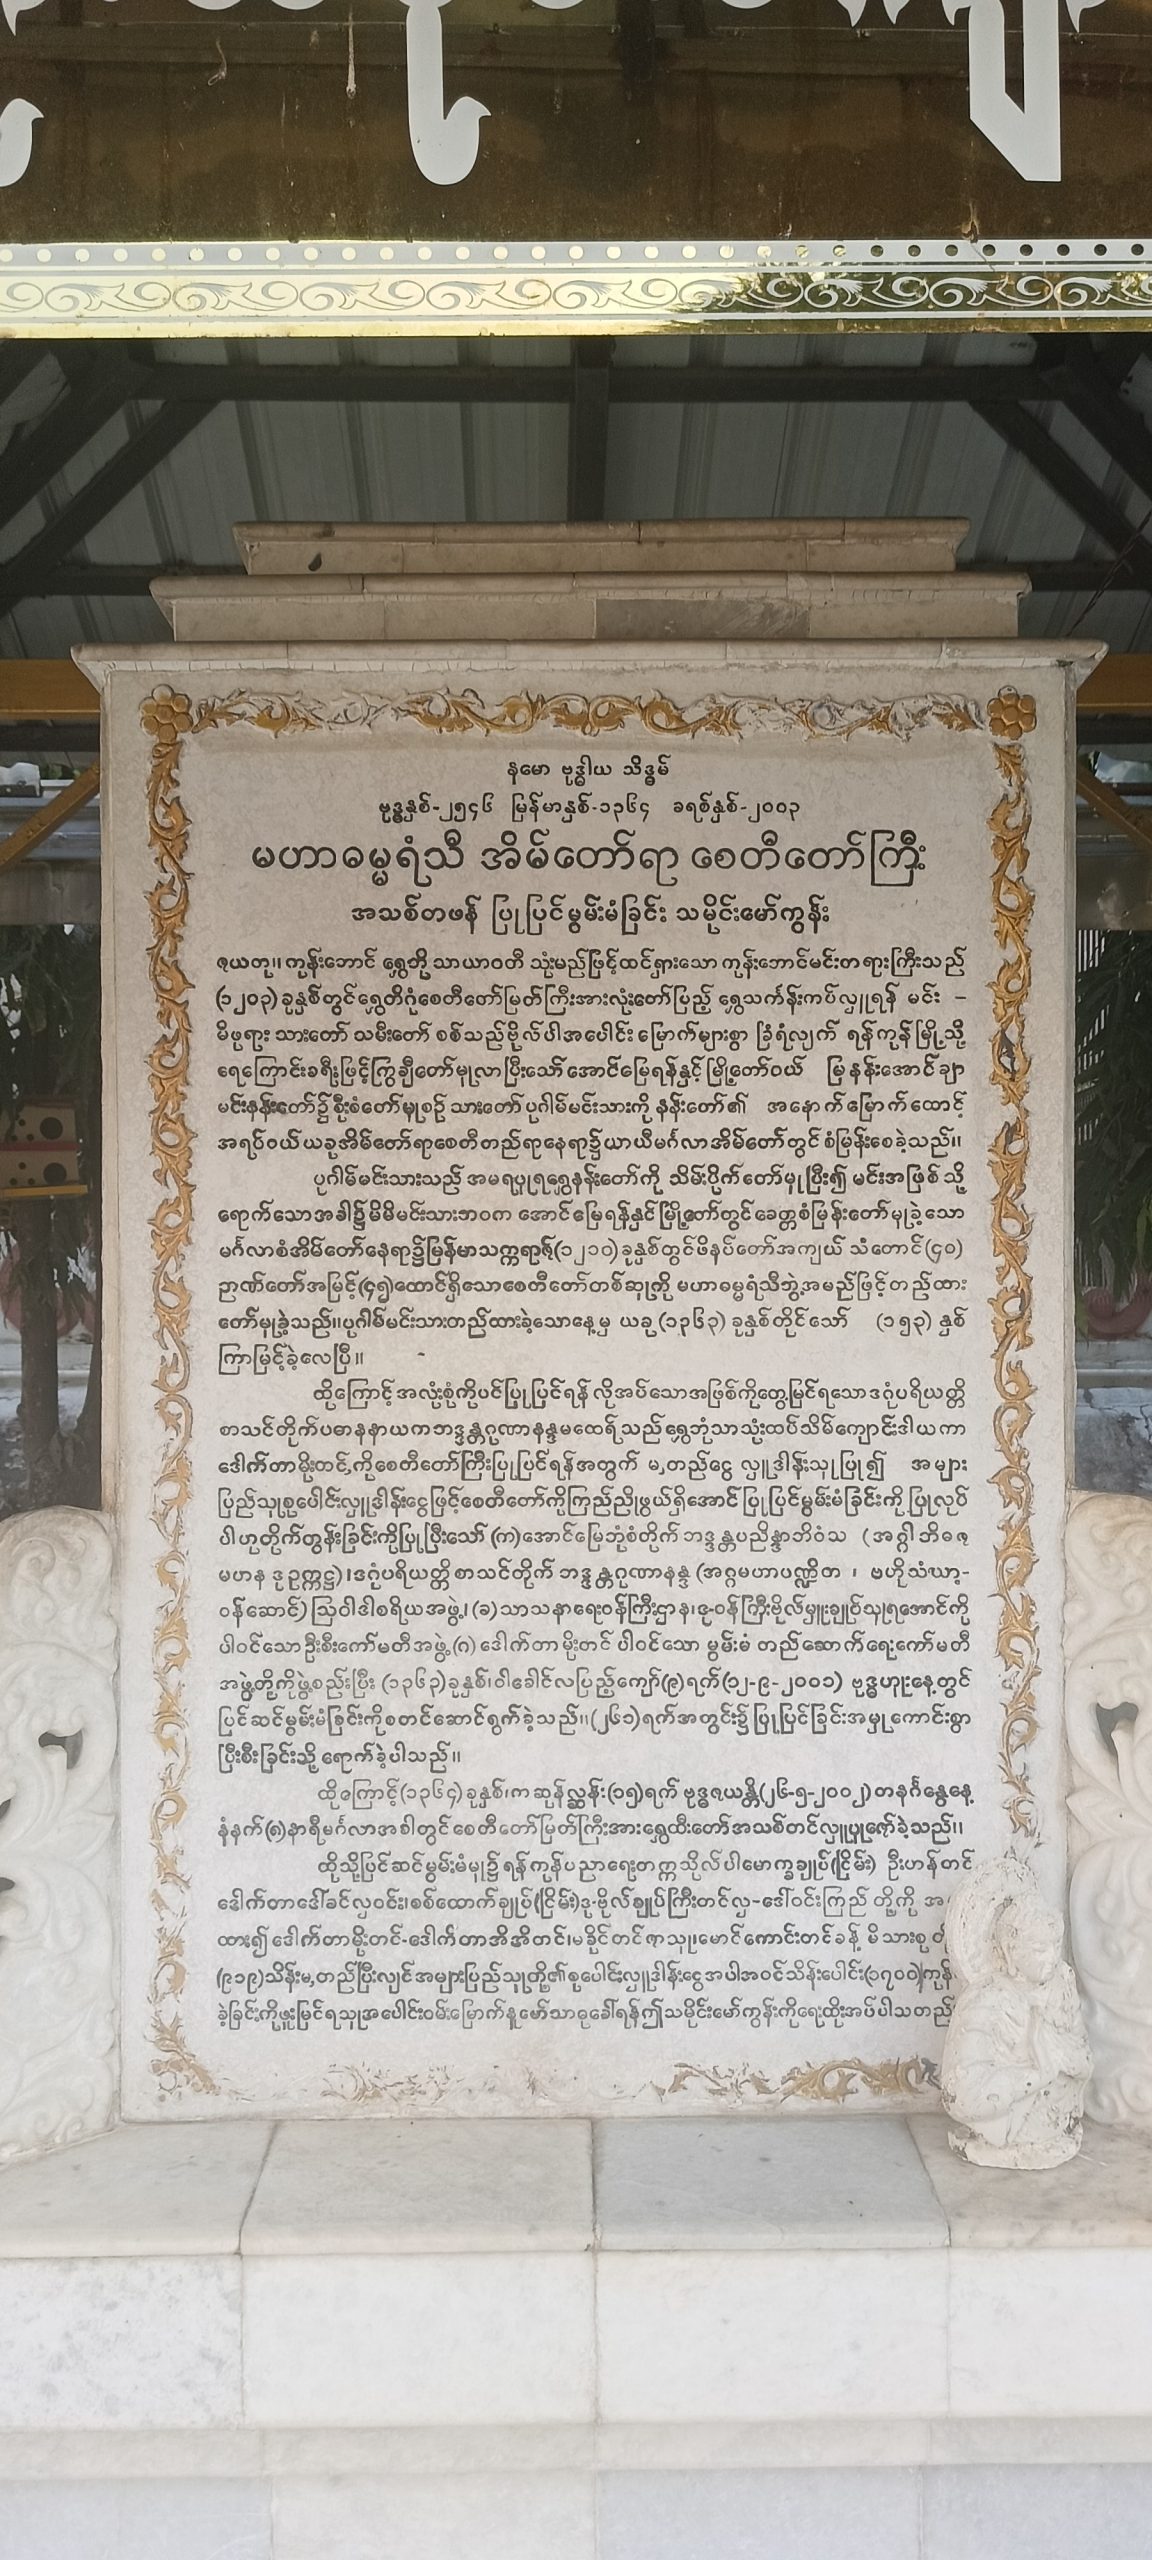 နမော ဗုဒ္ဓါယ သိဒ္ဓမ်
ဗုဒ္ဓနှစ်-၂၅၄၆ မြန်မာနှစ်-၁၃၆၄ ခရစ်နှစ်-၂၀၀၃
မဟာဓမ္မရံသီ အိမ်တော်ရာ စေတီတော်ကြီး
အသစ်တဖန် ပြုပြင်မွမ်းမံခြင်း သမိုင်းမော်ကွန်း
ဇယတု။ ကုန်းဘောင် ရွှေဘို သာယာဝတီ သုံးမည်ဖြင့်ထင်ရှားသော ကုန်းဘောင်မင်းတရားကြီးသည်
(၁၂၀၃) ခုနှစ်တွင်ရွှေတိဂုံစေတီတော်မြတ်ကြီးအားလုံးတော်ပြည့် ရွှေသင်္ကန်းကပ်လှူရန် မင်း –
မိဖုရား သားတော် သမီးတော် စစ်သည်ဗိုလ်ပါအပေါင်း မြောက်များစွာ ခြံရံလျက် ရန်ကုန်မြို့သို့
ရေကြောင်းခရီးဖြင့်ကြွချီတော်မူလာပြီးသော် အောင်မြေရန်နှင့်မြို့တော်ဝယ် မြနန်းအောင်ချာ
မင်းနန်းတော်၌ စိုးစံတော်မူစဉ် သားတော် ပုဂါမ်မင်းသားကို နန်းတော်၏ အနောက်မြောက်ထောင့်
အရပ်ဝယ် ယခုအိမ်တော်ရာစေတီတည်ရာနေရာ၌ယာယီမင်္ဂလာအိမ်တော်တွင် စံမြန်းစေခဲ့သည်။
ပုဂါမ်မင်းသားသည် အမရပူရရွှေနန်းတော်ကို သိမ်းပိုက်တော်မူပြီး၍ မင်းအဖြစ် သို့
ရောက်သောအခါ၌ မိမိမင်းသားဘဝက အောင်မြေရန်နှင်မြို့တော်တွင်ခေတ္တစံမြန်းတော်မူခဲ့သော
မင်္ဂလာစံအိမ်တော်နေရာ၌မြန်မာသက္ကရာဇ်(၁၂၁၀)ခုနှစ်တွင်ဖိနပ်တော်အကျယ် သံတောင်(၄၀)
ဉာဏ်တော်အမြင့်(၄၅)ထောင်ရှိသောစေတီတော်တစ်ဆူကို မဟာဓမ္မရံသီဘွဲ့အမည်ဖြင့်တည်ထား
တော်မူခဲ့သည်။ပုဂါမ်မင်းသားတည်ထားခဲ့သောနေ့မှ ယခု (၁၃၆၃) ခုနှစ်တိုင်သော် (၁၅၃) နှစ်
ကြာမြင့်ခဲ့လေပြီ။
ထိုကြောင့် အလုံးစုံကိုပင်ပြုပြင်ရန် လိုအပ်သောအဖြစ်ကိုတွေ့မြင်ရသော ဒဂုံပရိယတ္တိ
စာသင်တိုက်ပဓာနနာယကဘဒ္ဒန္တဂုဏာနန္ဒမထေရ်သည်ရွှေဘုံသာသုံးထပ်သိမ်ကျောင်းဒါယကာ
ဒေါက်တာမိုးတင့်ကိုစေတီတော်ကြီးပြုပြင်ရန်အတွက် မ,တည်ငွေ လှူဒါန်းသူပြု၍ အများ
ပြည်သူစုပေါင်းလှူဒါန်းငွေဖြင့်စေတီတော်ကိုကြည်ညိုဖွယ်ရှိအောင် ပြုပြင်မွမ်းမံခြင်းကို ပြုလုပ်
ပါဟုတိုက်တွန်းခြင်းကိုပြုပြီးသော် (က)အောင်မြေဘုံစံတိုက် ဘဒ္ဒန္တပညိန္ဒာဘိဝံသ (အဂ္ဂါဘိဓဇ
ဒဂုံပရိယတ္တိစာသင်တိုက် ဘဒ္ဒန္တဂုဏာနန္ဒ (အဂ္ဂမဟာပဏ္ဍိတ ၊ ဗဟိုသံဃာ့-
ဝန်ဆောင်) သြဝါဒါစရိယအဖွဲ့၊ (ခ)သာသနာရေးဝန်ကြီးဌာန၊ဒု-ဝန်ကြီးဗိုလ်မှူးချုပ်သူရအောင်ကို
ပါဝင်သော ဦးစီးကော်မတီအဖွဲ့(ဂ) ဒေါက်တာ မိုးတင် ပါဝင်သော မွမ်းမံ တည်ဆောက်ရေးကော်မတီ
အဖွဲ့တို့ကိုဖွဲ့စည်းပြီး (၁၃၆၃)ခုနှစ်၊ဝါခေါင်လပြည့်ကျော်(၉)ရက်(၁၂-၉-၂၀၀၁) ဗုဒ္ဓဟူးနေ့တွင်
ပြင်ဆင်မွမ်းမံခြင်းကိုစတင်ဆောင်ရွက်ခဲ့သည်။(၂၆၁)ရက်အတွင်း၌ ပြုပြင်ခြင်းအမှုကောင်းစွာ
ပြီးစီးခြင်းသို့ ရောက်ခဲ့ပါသည်။
ထိုကြောင့်(၁၃၆၄)ခုနှစ်၊ကဆုန်လ္ဆန်း(၁၅)ရက် ဗုဒ္ဓဇယန္တိ(၂၆-၅-၂၀၀၂)တနင်္ဂနွေနေ့
နံနက်(၈)နာရီမင်္ဂလာအခါတွင်စေတီတော်မြတ်ကြီးအားရွှေထီးတော်အသစ်တင်လှူပူဇော်ခဲ့သည်။
ထိုသို့ပြင်ဆင်မွမ်းမံမှု၌ ရန်ကုန်ပညာရေးတက္ကသိုလ်ပါမောက္ခချုပ်(ငြိမ်း) ဦးဟန်တင်
ဒေါက်တာဒေါ်ခင်လှဝင်း၊စစ်ထောက်ချုပ်(ငြိမ်း)ဒု-ဗိုလ်ချုပ်ကြီးတင်လှ-ဒေါ်ဝင်းကြည် တို့ကို
ထား၍ ဒေါက်တာမိုးတင်-ဒေါက်တာအိအိတင်၊မခိုင်တင်ဇာသူ၊မောင်ကောင်းတင်ခန့် မိသားစု
(၉၁၉)သိန်းမ,တည်ပြီးလျင်အများပြည်သူတို့၏စုပေါင်းလှူဒါန်းငွေအပါအဝင်သိန်းပေါင်း(၁၇၀၀)ကုန်
ခဲ့ခြင်းကိုဖူးမြင်ရသူအပေါင်းဝမ်းမြောက်နုမော်သာဓုခေါ်ရန်ဤသမိုင်းမော်ကွန်းကိုရေးထိုးအပ်ပါသတည်